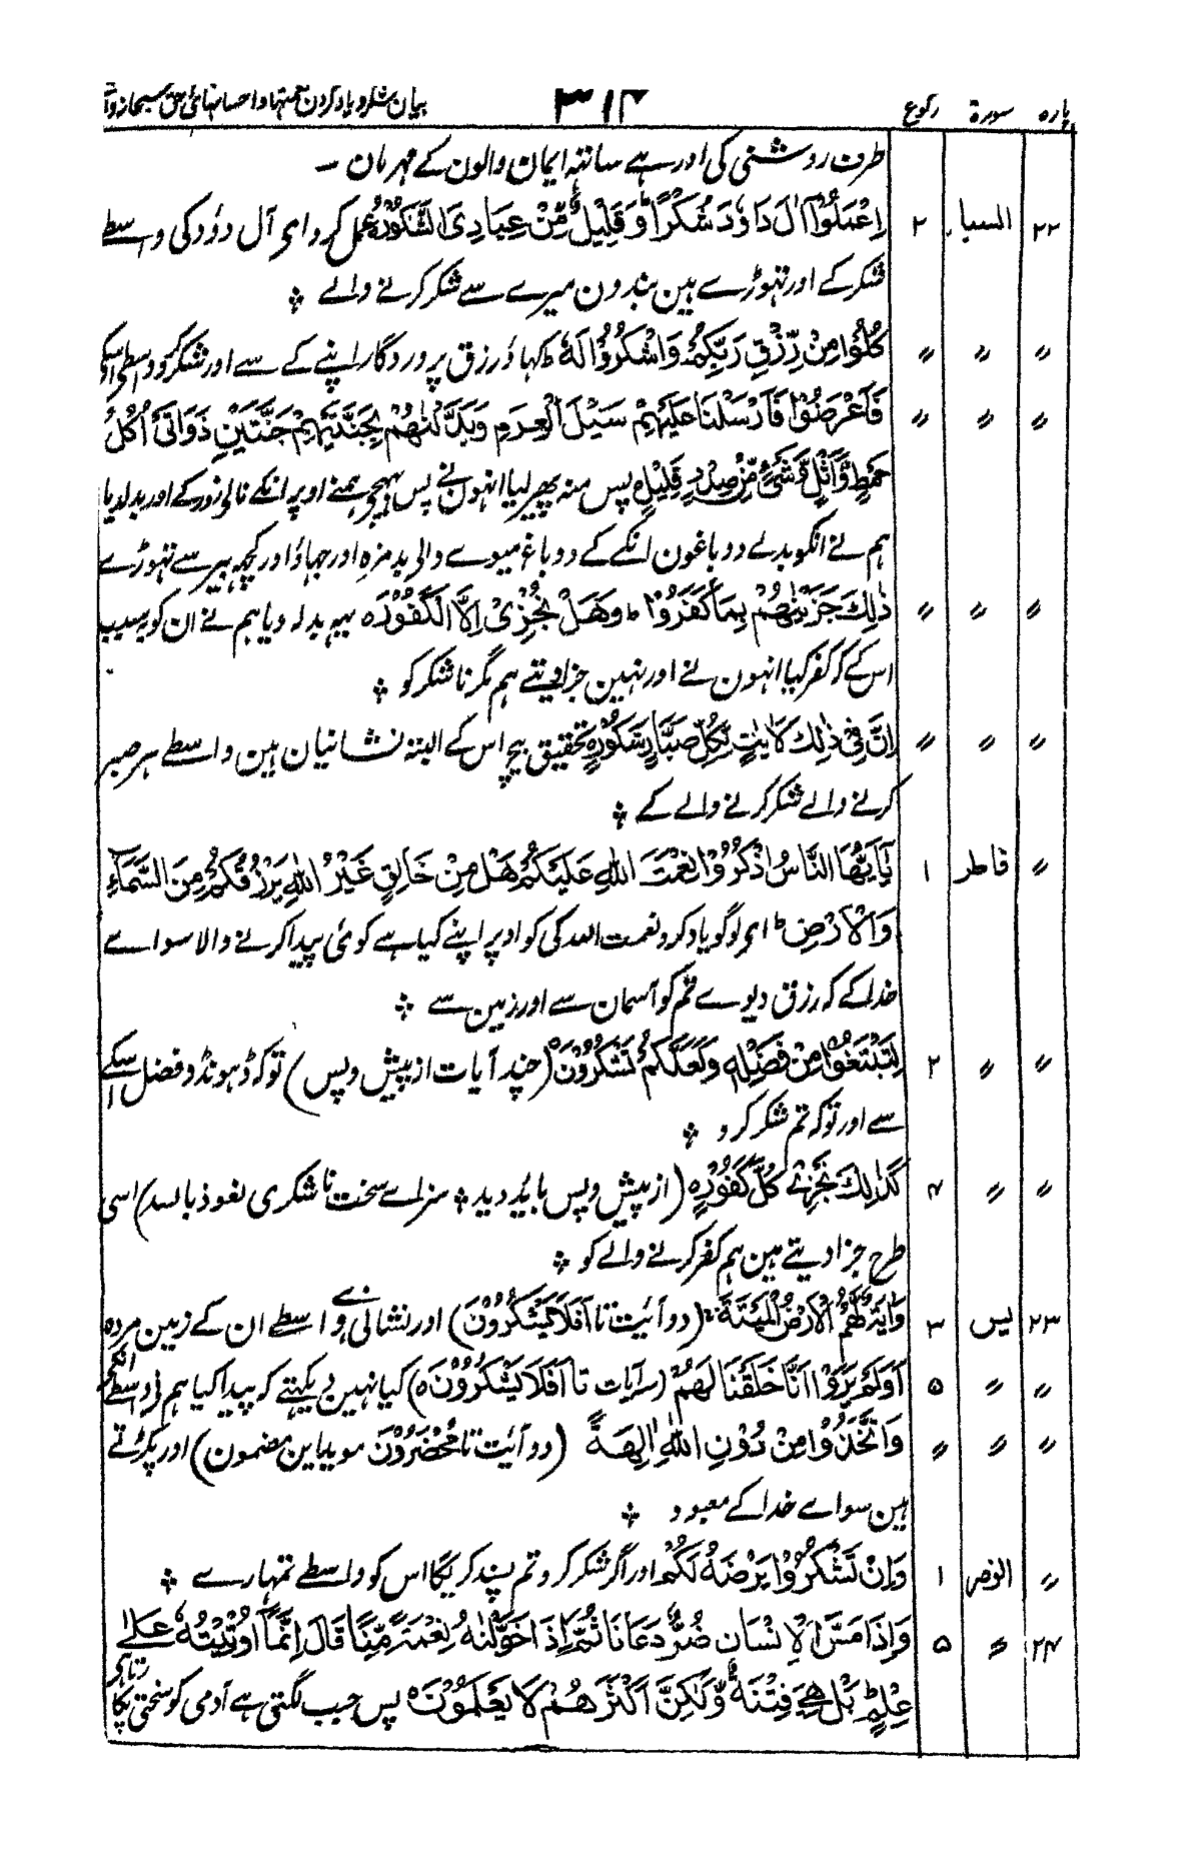 پارہ سورۃ رکوع ۳۱۴ بیان شکر و یاد کردن نعمتہا و احسانہائ حق سبحانہ
طرف روشنی کی اور ہے ساتہہ ایمان والون کے مہربان ۔
۲۲ السبا ۲ اِعْمَلُوْا اٰلَ دَاوٗدَ شُكْرًا وَقَلِيْلٌ مِّنْ عِبَادِیَ الشَّكُوْرُ عمل کرو اے آل داؤد کی واسطے
شکر کے اور تہوڑے ہین بندون میرے سے شکر کرنے والے ⁘
〃 〃 〃 كُلُوْا مِنْ رِّزْقِ رَبِّكُمْ وَاشْكُرُوْا لَهٗ کہاؤ رزق پروردگار اپنے کے سے اور شکر کرو واسطے اسکی
〃 〃 〃 فَاَعْرَضُوْا فَاَرْسَلْنَا عَلَيْهِمْ سَيْلَ الْعَرِمِ وَبَدَّلْنٰهُمْ بِجَنَّتَيْهِمْ جَنَّتَيْنِ ذَوَاتَیْ اُكُلٍ
خَمْطٍ وَّاَثْلٍ وَّشَیْءٍ مِّنْ سِدْرٍ قَلِيْلٍ پس منہ پھیر لیا انہون نے پس بہیجی ہمنے اوپر انکے نالی زور کے اور بدلدیا
ہم نے انکو بدلے دو باغون انکے کے دو باغ میوے والی بدمزہ اور جہاؤ اور کچہہ بیر سے تہوڑے
〃 〃 〃 ذٰلِكَ جَزَيْنٰهُمْ بِمَا كَفَرُوْا ؕ وَهَلْ نُجٰزِیْ اِلَّا الْكَفُوْرَ ہ یہہ بدلہ دیا ہم نے ان کو بسبب
اس کے کہ کفر کیا انہون نے اور نہین جزا دیتے ہم مگر ناشکر کو ⁘
〃 〃 〃 اِنَّ فِیْ ذٰلِكَ لَاٰيٰتٍ لِّكُلِّ صَبَّارٍ شَكُوْرٍ ہ تحقیق بیچ اس کے البتہ نشانیان ہین واسطے ہر صبر
کرنے والے شکر کرنے والے کے ⁘
〃 فاطر ۱ يٰۤاَيُّهَا النَّاسُ اذْكُرُوْا نِعْمَتَ اللّٰهِ عَلَيْكُمْ هَلْ مِنْ خَالِقٍ غَيْرُ اللّٰهِ يَرْزُقُكُمْ مِنَ السَّمَآءِ
وَالْاَرْضِ ؕ اے لوگو یاد کرو نعمت اللہ کی کو اوپر اپنے کیا ہے کوئی پیدا کرنے والا سواے
خدا کے کہ رزق دیوے تم کو آسمان سے اور زمین سے ⁘
〃 〃 ۲ لِتَبْتَغُوْا مِنْ فَضْلِهٖ وَلَعَلَّكُمْ تَشْكُرُوْنَ ہ (چند آیات از پیش و پس) تو کہ ڈہونڈو فضل اسکے
سے اور تو کہ تم شکر کرو ⁘
〃 〃 ۴ كَذٰلِكَ نَجْزِیْ كُلَّ كَفُوْرٍ ہ (از پیش و پس بائید دید ⁘ سزاے سخت ناشکری نعوذ باللہ) اسی
طرح جزا دیتے ہین ہم کفر کرنے والے کو ⁘
۲۳ یس ۳ وَاٰيَةٌ لَّهُمُ الْاَرْضُ الْمَيْتَةُ (دو آئیت تا اَفَلَا يَشْكُرُوْنَ) اور نشانی ہے واسطے ان کے زمین مردہ
〃 〃 ۵ اَوَلَمْ يَرَوْا اَنَّا خَلَقْنَا لَهُمْ (سہ آیات تا اَفَلَا يَشْكُرُوْنَ ہ) کیا نہین دیکہتے کہ پیدا کیا ہم نے واسطے انکے
〃 〃 〃 وَاتَّخَذُوْا مِنْ دُوْنِ اللّٰهِ اٰلِهَةً (دو آئیت تا مُحْضَرُوْنَ موید باین مضمون) اور پکڑتے
ہین سواے خدا کے معبود ⁘
〃 الزمر ۱ وَاِنْ تَشْكُرُوْا يَرْضَهُ لَكُمْ اور اگر شکر کرو تم پسند کریگا اس کو واسطے تمہارے ⁘
۲۴ 〃 ۵ وَاِذَا مَسَّ الْاِنْسَانَ ضُرٌّ دَعَانَا ثُمَّ اِذَا خَوَّلْنٰهُ نِعْمَةً مِّنَّا قَالَ اِنَّمَاۤ اُوْتِيْتُهٗ عَلٰی
عِلْمٍ بَلْ هِیَ فِتْنَةٌ وَّلٰكِنَّ اَكْثَرَهُمْ لَا يَعْلَمُوْنَ ہ پس جب لگتی ہے آدمی کو سختی پکارتا ہی